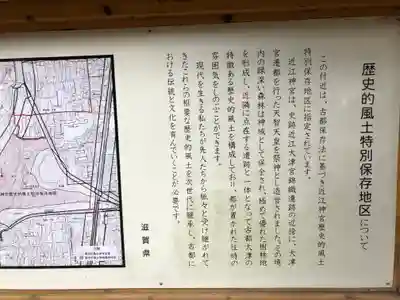 歴史的風土特別保存地区について
この付近は、古都保存法に基づく近江神宮歴史的風土
特別保存地区に指定されています。
近江神宮は、史跡近江大津宮錦織遺跡の近接に、大津
宮遷都を行った天智天皇を祭神とし造営されました。その境
内の緑深い森林は神域として保全され、極めて優れた樹林地
を形成し、近隣に点在する遺跡と一体となって古都大津の
特徴ある歴史的風土を構成しており、都が置かれた往時の
雰囲気をしのぶことができます。
現代を生きる私たちが先人たちから脈々と受け継がれて
きたこれらの枢要な歴史的風土を次世代に継承し、古都に
おける伝統と文化を育んでいくことが必要です。
滋賀県